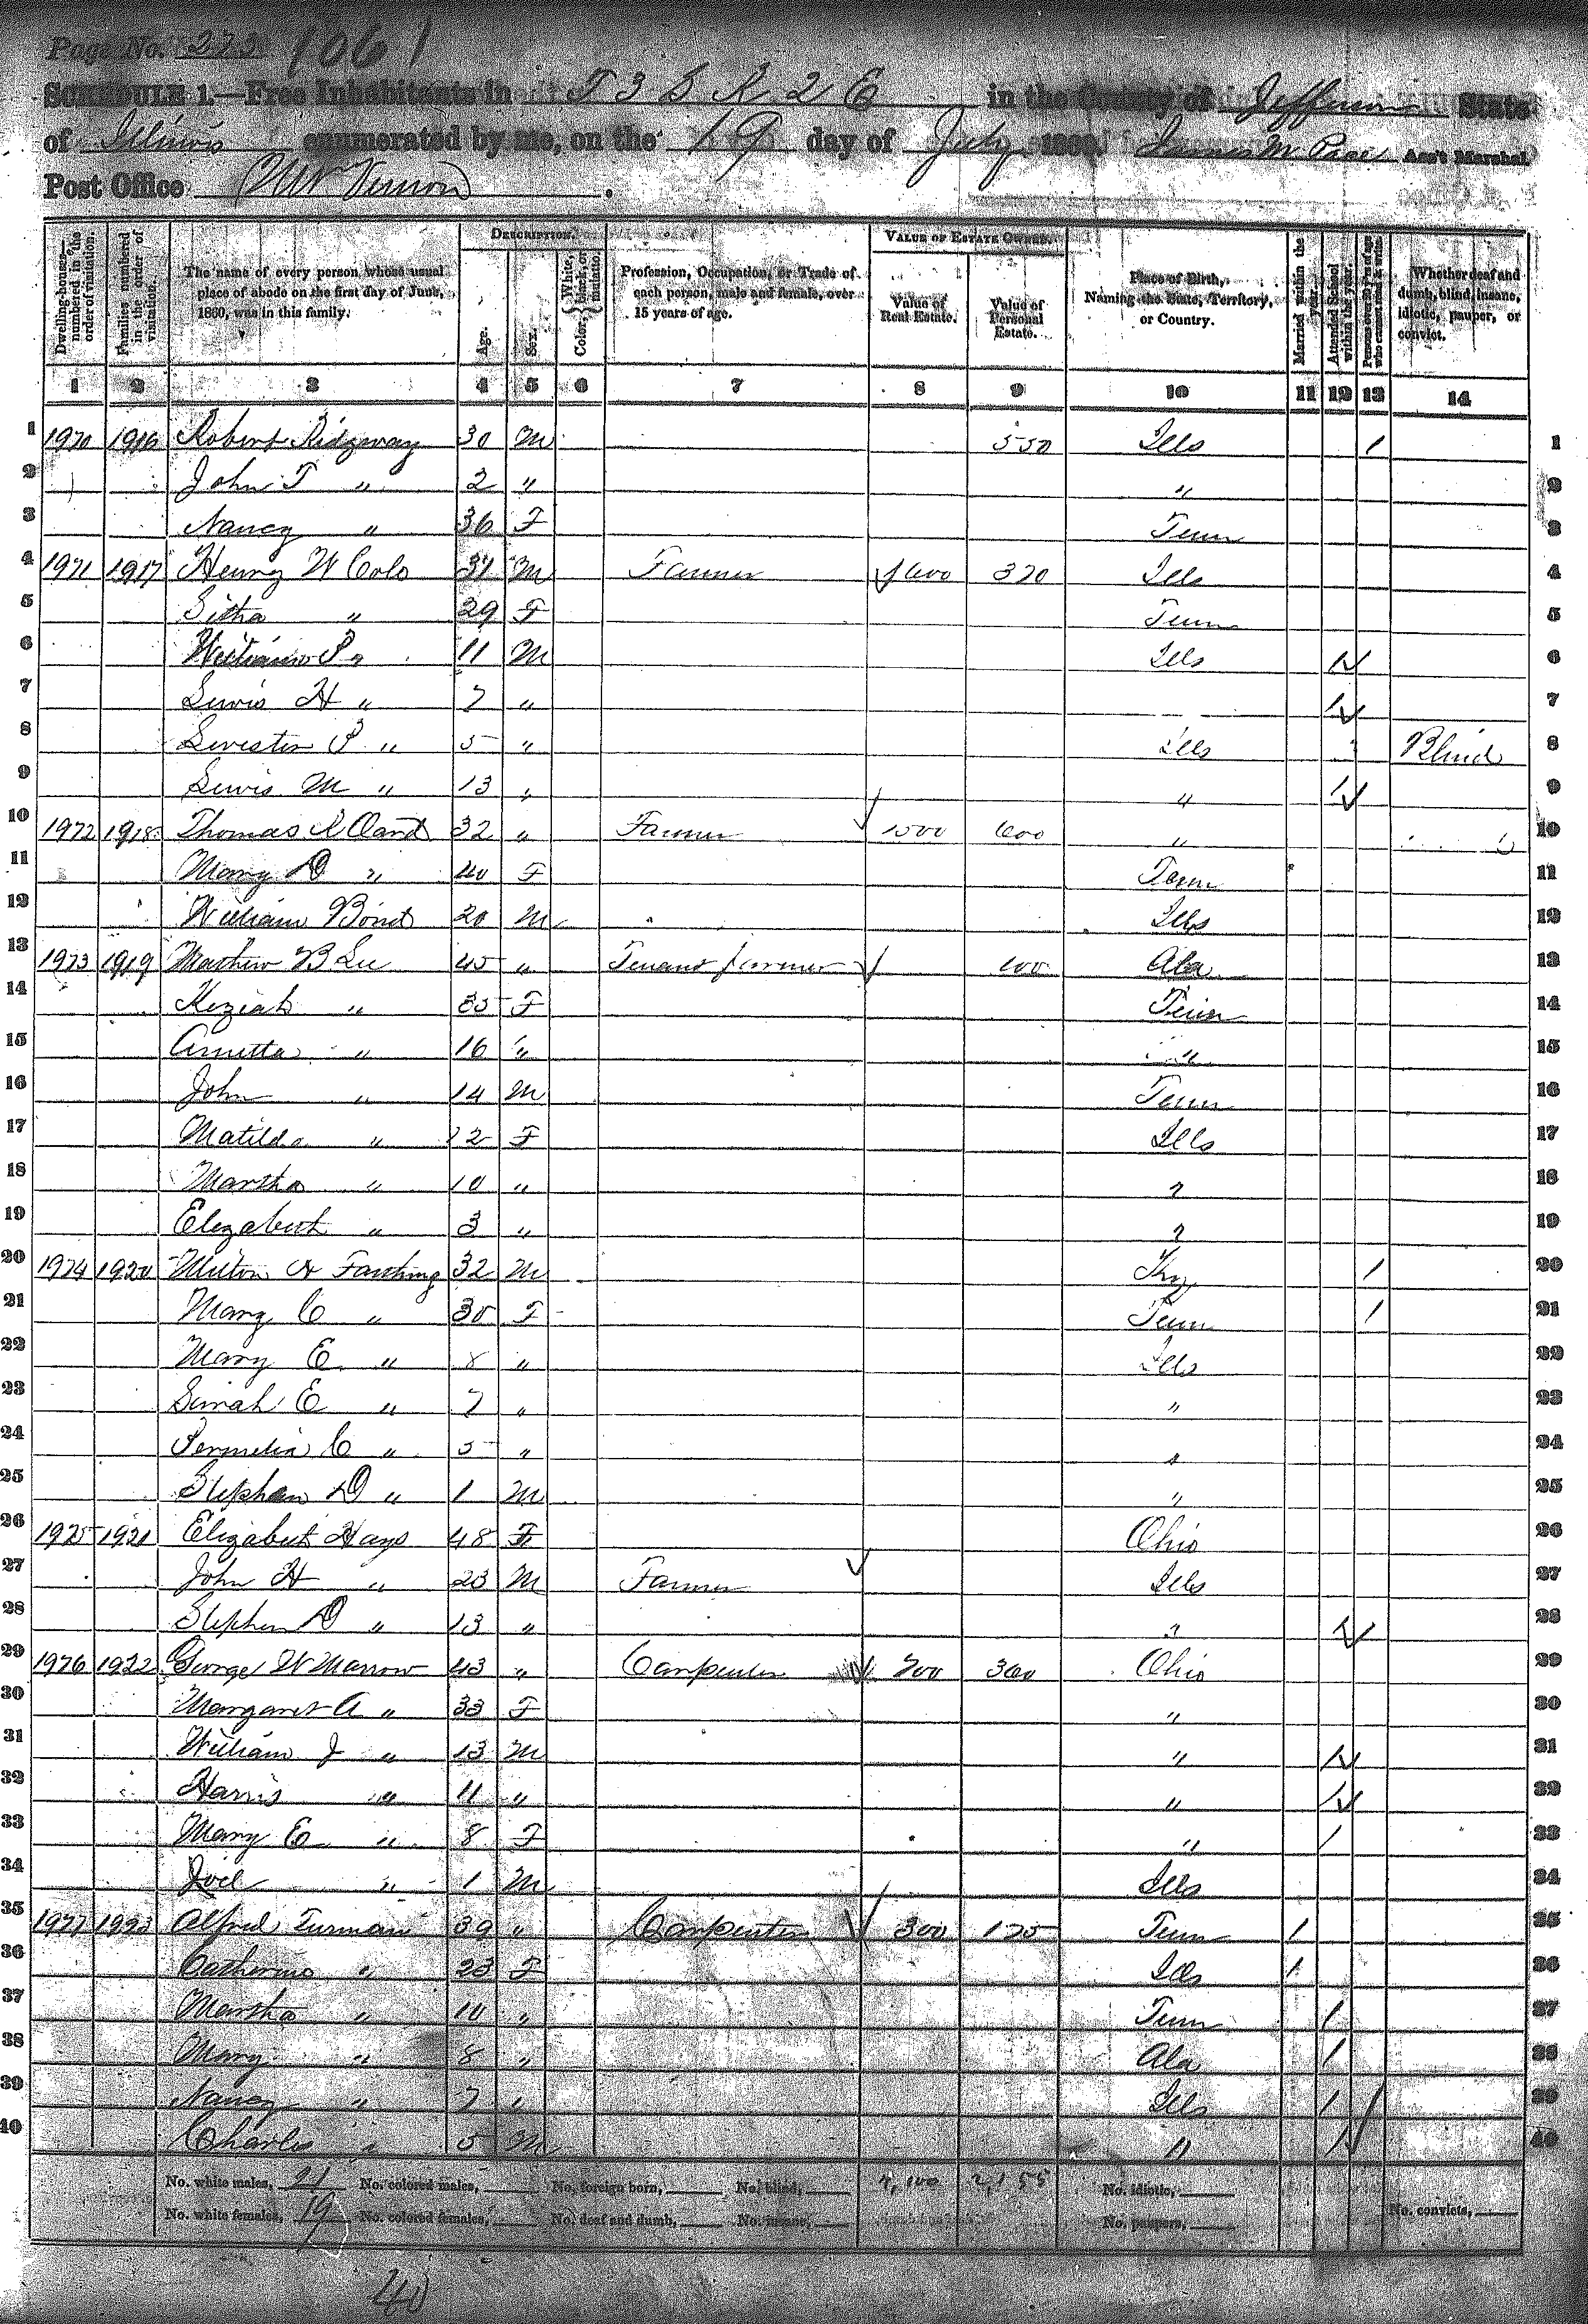 Page No. 273 1061
SCHEDULE 1.—Free Inhabitants in T 3 S R 2 E in the County of Jefferson State
of Illinois enumerated by me, on the 19 day of July 1860. James M Pace Ass't Marshal.
Post Office Mt Vernon.
Dwelling-houses—numbered in the order of visitation. Families numbered in the order of visitation. The name of every person whose usual place of abode on the first day of June, 1860, was in this family. DESCRIPTION. Age. Sex. Color, {White, black, or mulatto. Profession, Occupation, or Trade of each person, male and female, over 15 years of age. VALUE OF ESTATE OWNED. Value of Real Estate. Value of Personal Estate. Place of Birth, Naming the State, Territory, or Country. Married within the year. Attended School within the year. Persons over 20 y'rs of age who cannot read & write. Whether deaf and dumb, blind, insane, idiotic, pauper, or convict.
1 2 3 4 5 6 7 8 9 10 11 12 13 14
1 1970 1916 Robert Ridgway 30 M 550 Ills / 1
2 John T " 2 " " 2
3 Nancy " 36 F Tenn 3
4 1971 1917 Henry W Cole 31 M Farmer 370 Ills 4
5 Sitha " 29 F Tenn 5
6 William P " 11 M Ills / 6
7 Lewis H " 7 " / 7
8 P " 5 " Ills Blind 8
9 Lewis M " 13 " " / 9
10 1972 1918 Thomas 32 " Farmer 1500 600 " 10
11 Mary D " 40 F Tenn 11
12 William Bond 20 M Ills 12
13 1973 1919 Mathew B Lee 45 " Tenant farmer 100 Ala 13
14 Keziah " 35 F Tenn 14
15 " 16 " " 15
16 John " 14 M Tenn 16
17 Matilda " 12 F Ills 17
18 Martha " 10 " " 18
19 Elizabeth " 3 " " 19
20 1974 1920 Milton A Farthing 32 M Ky / 20
21 Mary C " 30 F Tenn / 21
22 Mary E " 8 " Ills 22
23 E " 7 " " 23
24 Permelia C " 5 " " 24
25 Stephen D " 1 M " 25
26 1975 1921 Elizabeth Hays 48 F Ohio 26
27 John H " 23 M Farmer Ills 27
28 Stephen D " 13 " " / 28
29 1976 1922 George W Marrow 43 " Carpenter 700 300 Ohio 29
30 Margaret A " 33 F " 30
31 William J " 13 M " / 31
32 Harris " 11 " " / 32
33 Mary E " 8 F " / 33
34 Joel " 1 M Ills 34
35 1977 1923 Alfred Turman 39 " Carpenter 300 175 Tenn / 35
36 Catherine " 23 F Ills / 36
37 Martha " 10 " Tenn / 37
38 Mary " 8 " Ala / 38
39 Nancy " 7 " Ills / 39
40 Charles " 5 M " / 40
No. white males, 21 No. colored males, No. foreign born, No. blind, No. idiotic,
No. white females, 19 No. colored females, No. deaf and dumb, No. insane, No. paupers, No. convicts,
40